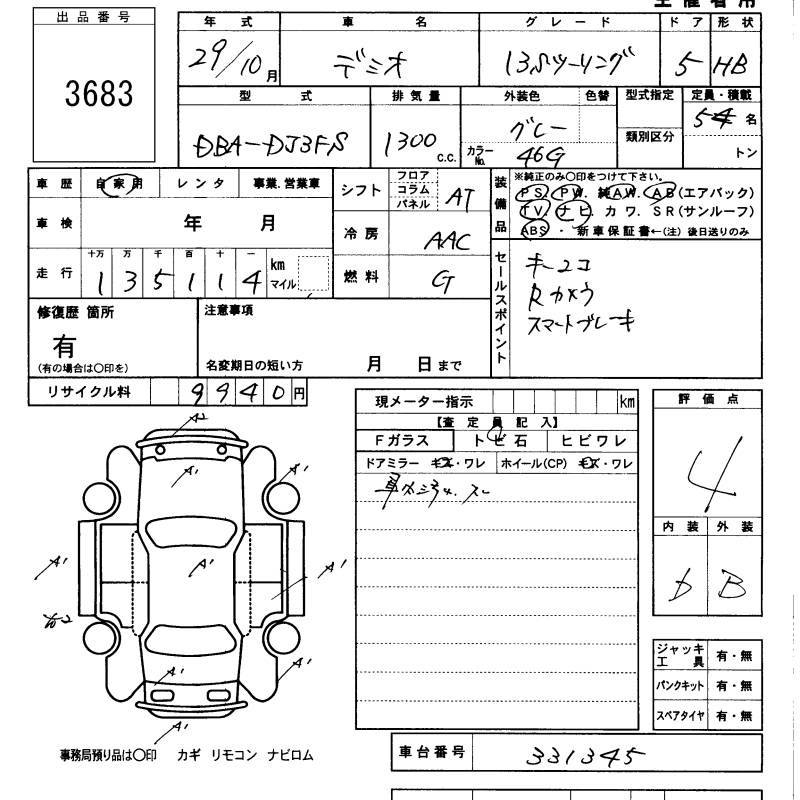 出品番号
3683
年式 車名 グレード ドア 形状
29/10月 デミオ 13Sツーリング 5 HB
型式 排気量 外装色 色替 型式指定 定員・積載
DBA-DJ3FS 1300 c.c. グレー 類別区分 5 名
カラーNo. 46G トン
車歴 自家用 レンタ 事業.営業車
シフト フロア コラム パネル AT
装備品
※純正のみ〇印をつけて下さい。
PS. PW. 純AW. AB(エアバック)
TV. ナビ. カワ. SR(サンルーフ)
ABS ・ 新車保証書←(注) 後日送りのみ
車検 年 月
冷房 AAC
走行 十万 万 千 百 十 一
1 3 5 1 1 4 km マイル
燃料 G
セールスポイント
キーユコ
Rカメラ
スマートブレーキ
修復歴 箇所
有
(有の場合は〇印を)
注意事項
名変期日の短い方 月 日まで
リサイクル料 9940円
現メーター指示 km
【査定員記入】
Fガラス トビ石 ヒビワレ
ドアミラー キズ・ワレ ホイール(CP) キズ・ワレ
評価点
4
内装 外装
D B
A2
A1
A1
A1
A1
A1
A1
A1
A1
A1
ジャッキ工具 有・無
パンクキット 有・無
スペアタイヤ 有・無
事務局預り品は〇印 カギ リモコン ナビロム
車台番号 331345